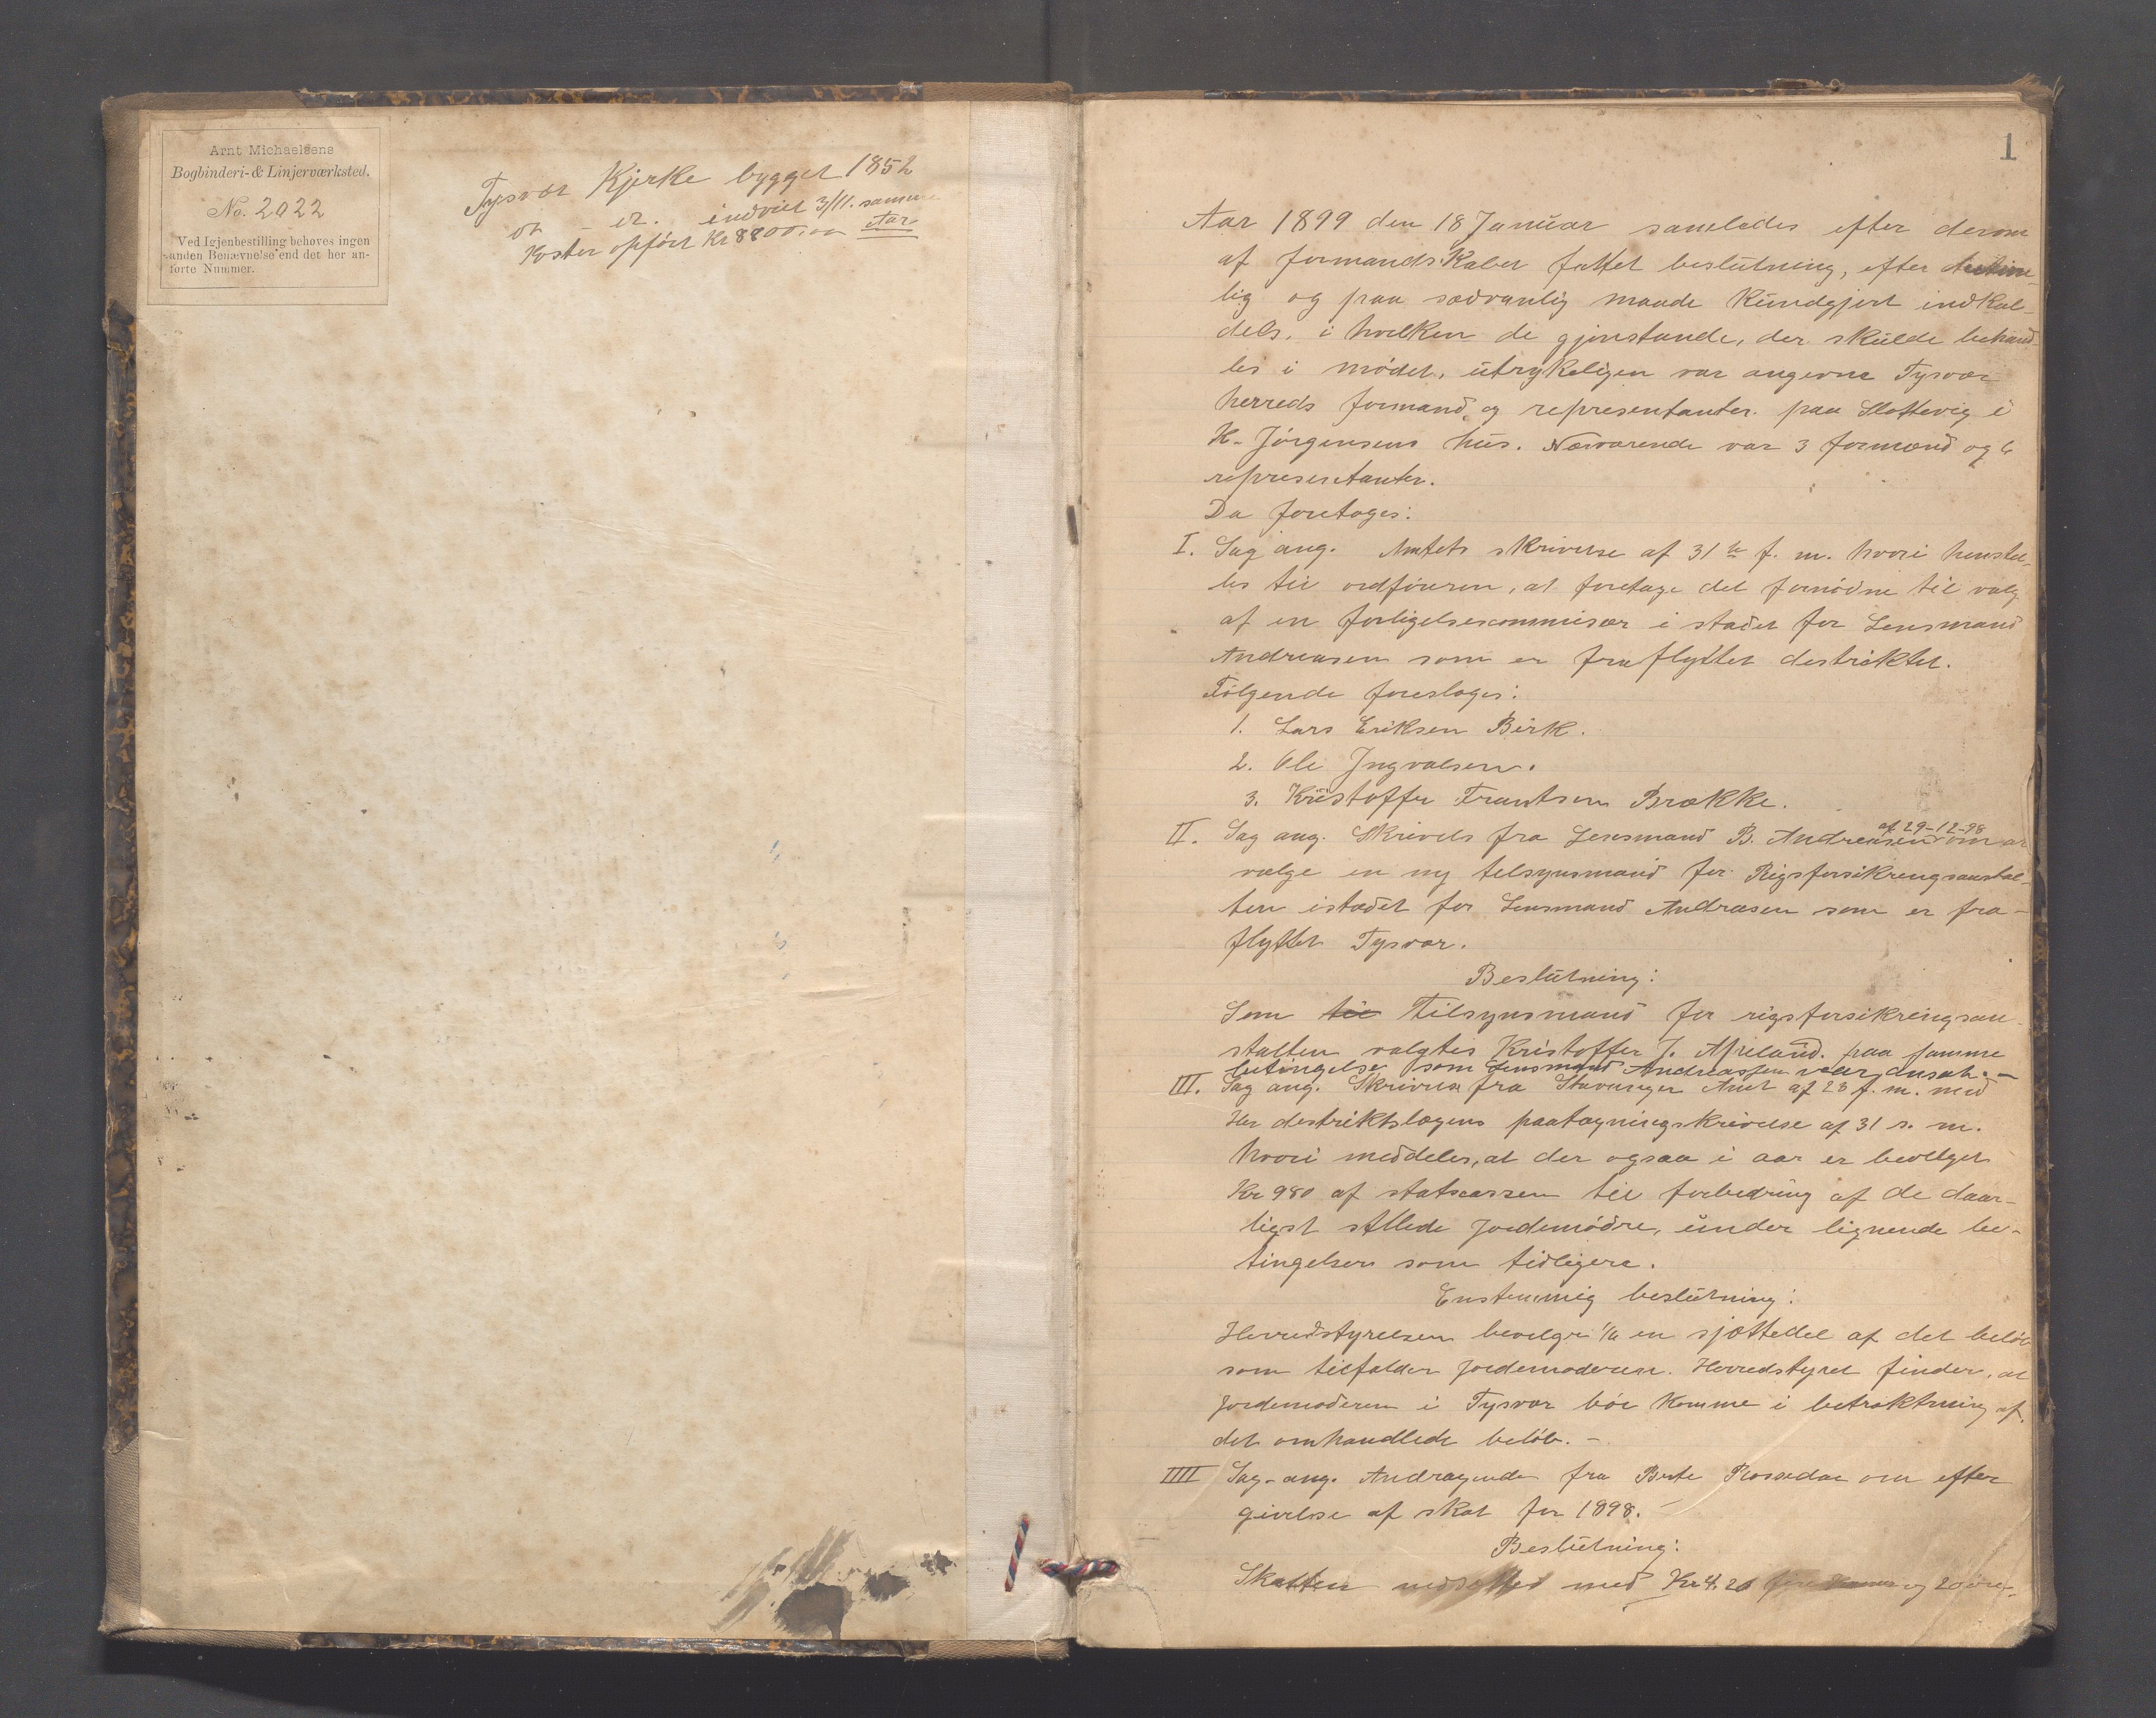 Arnt Michaelsens
Bogbinderi- & Linjerværksted.
No. 2022
Ved Igjenbestilling behøves ingen
anden Benævnelse end det her an-
førte Nummer.
Tysvær Kjerke bygget 1852
indviet 3/11. samme
Aar
Koster opført Kr 8800,00
1
Aar 1899 den 18 Januar samledes efter derom
af formandskabet fattet beslutning, efter
lig og paa sædvanlig maade kundgjort indkal-
dels, i hvilken de gjenstande, der skulde behand-
les i mødet, utrykeligen var angevne Tysvær
herreds formænd og representanter paa Slottevig i
K. Jørgensens hus. Nærværende var 3 formænd og 6
representanter.
Da foretoges:
I. Sag ang. Amtets skrivelse af 31te f. m. hvori henstel-
les til ordføreren, at foretage det fornødne til valg
af en forligelsescommisær i stedet for Lensmand
Andreasen som er fraflyttet destriktet.
Følgende foresloges:
1. Lars Eriksen Birk.
2. Ole Ingvalsen.
3. Kristoffer Frantsen Brække.
II. Sag ang. Skrivels fra Lensmand B. Andreasen af 29-12-98 om at
vælge en ny telsynsmand for Rigsforsikrengsanstal-
ten istædet for Lensmand Andrasen som er fra-
flyttet Tysvær.
Beslutning:
Som til Tilsynsmand for rigsforsikringsan-
stalten valgtes Kristoffer J. Apeland. paa samme
betingelse som Lensmand Andreassen var ansat. -
III. Sag ang. Skrivelse fra Stavanger Amt af 28 f. m. med
Hr destriktslægens paategningskrivelse af 31 s. m.
hvori meddeles, at der ogsaa i aar er bevilget
Kr 980 af statscassen til forbedring af de daar-
ligst stllede Jordemødre, under lignende be-
tingelser som tidligere.
Enstemmig beslutning:
Herredstyrelsen bevelger 1/6 en sjøttedel af det beløb
som tilfalder Jordemoderen. Herredstyret finder, at
Jordemoderen i Tysvær bør komme i betraktning af
det omhandlede beløb. -
IIII Sag-ang. Andragende fra Berte Rossedar om efter
givelse af skat for 1898. -
Beslutning:
Skatten nedsættes med Kr 4.20 fire Kroner og 20 øre.